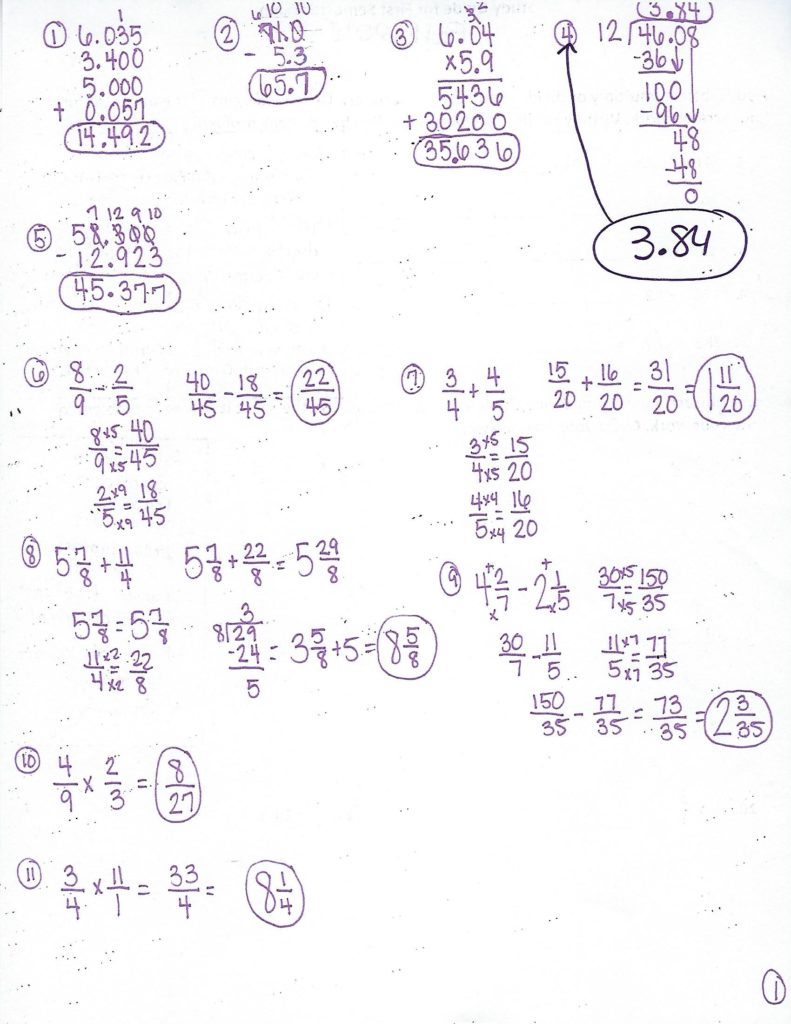 ① 6.035
3.400
5.000
+ 0.057
14.492
② 71.0
- 5.3
65.7
③ 6.04
x5.9
5436
+30200
35.636
④ 12 46.08
3.84
-36
100
96
48
-48
0
3.84
⑤ 7 12 9 10
58.300
-12.923
45.377
⑥ 8/9 - 2/5 40/45 - 18/45 = 22/45
8x5/9x5 = 40/45
2x9/5x9 = 18/45
⑦ 3/4 + 4/5 15/20 + 16/20 = 31/20 = 1 11/20
3x5/4x5 = 15/20
4x4/5x4 = 16/20
⑧ 5 7/8 + 11/4 5 7/8 + 22/8 = 5 29/8
5 7/8 = 5 7/8
11x2/4x2 = 22/8
3
8 29
-24
5
= 3 5/8 + 5 = 8 5/8
⑨ 4 2/7 - 2 1/5 30x5/7x5 = 150/35
30/7 - 11/5 11x7/5x7 = 77/35
150/35 - 77/35 = 73/35 = 2 3/35
⑩ 4/9 x 2/3 = 8/27
⑪ 3/4 x 11/1 = 33/4 = 8 1/4
①